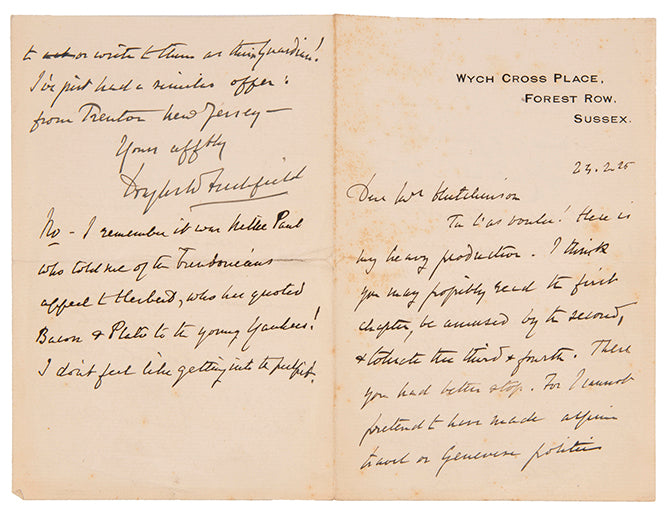 WYCH CROSS PLACE,
FOREST ROW.
SUSSEX.
Dear Mr Hutchinson
Tu l'as voulu! Here is
my heavy production. I think
you may possibly read the first
chapter, be amused by the second,
& tolerate the third & fourth. There
you had better stop. For I cannot
pretend to have made alpine
travel or Genevese politics
to or write to them as their Guardian!
I've just had a similar offer:
from Trenton New Jersey —
Yours afftly
Douglas W Freshfield
No - I remember it was Paul
who told me of the Trentonians
appeal to Herbert, who has quoted
Bacon & Plato to the young Yankees!
I don't feel like getting into the pulpit.